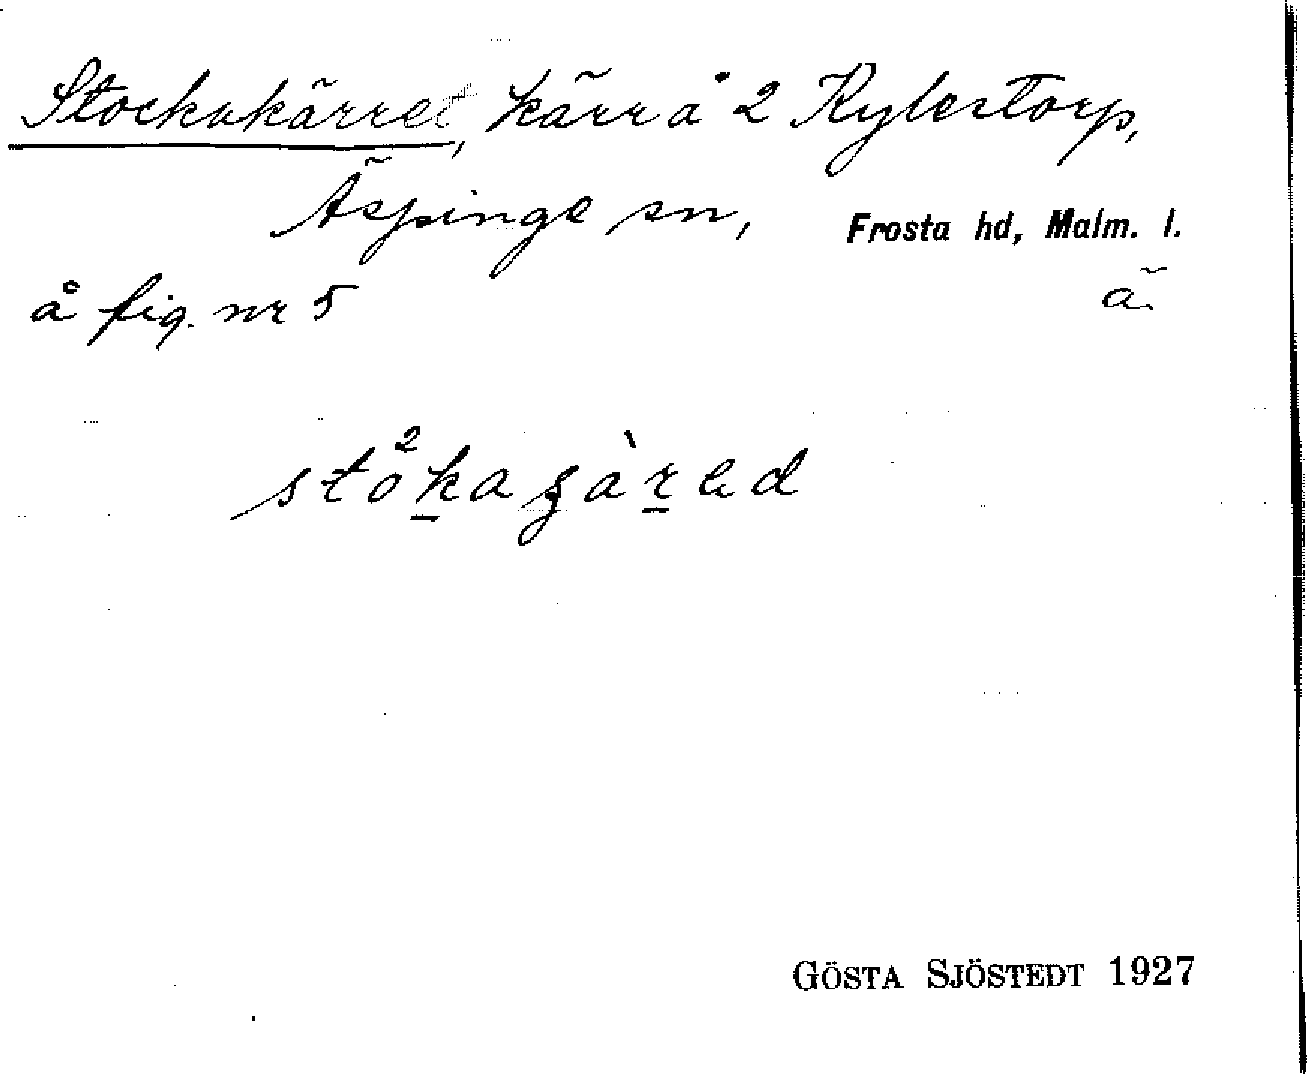 Stockakärret, kärr å 2 Kylestorp,
Äspinge sn, Frosta hd, Malm. l.
å fig. nr 5 ä.
GÖSTA SJÖSTEDT 1927